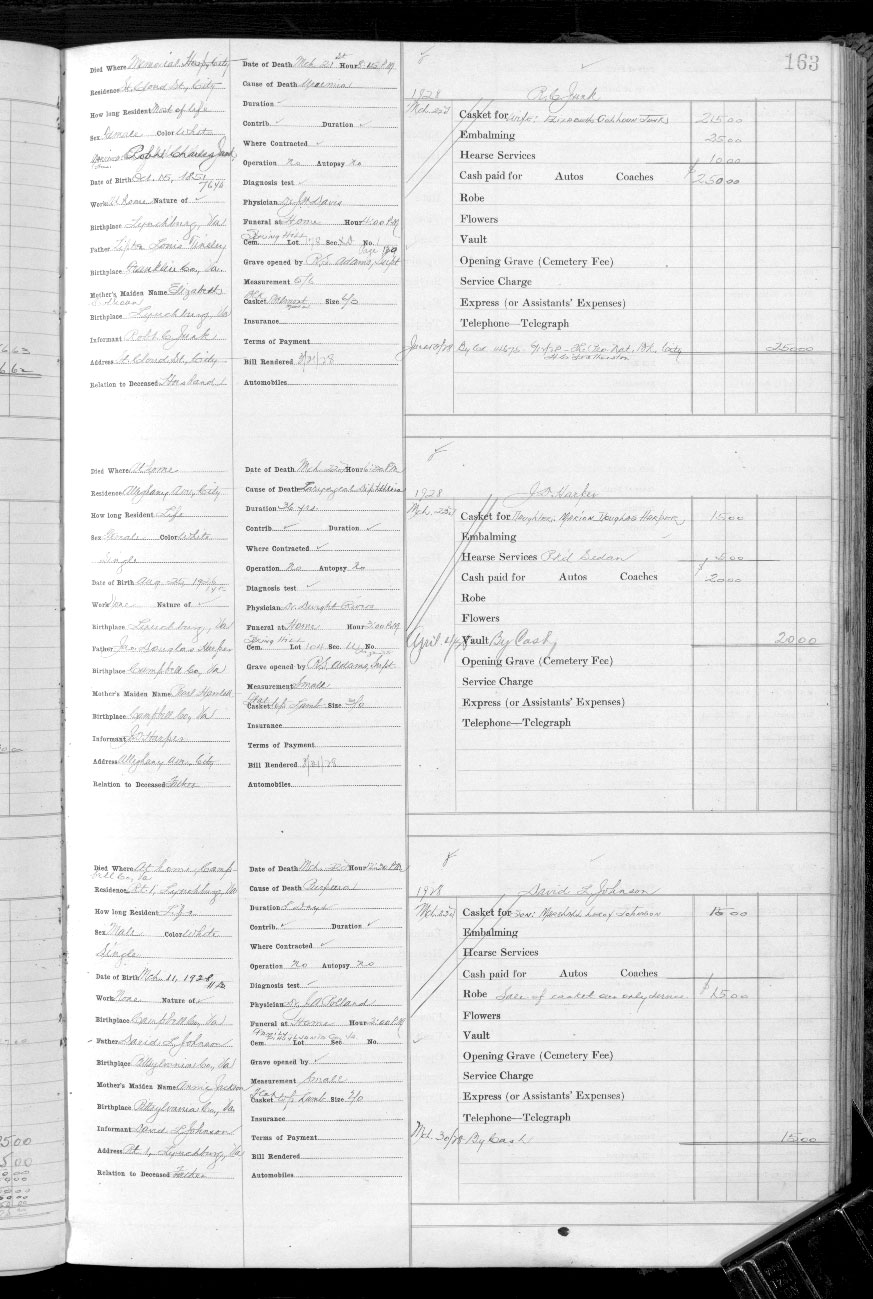 163
Died Where Memorial Hosp, City
Residence St. Cloud St., City
How long Resident Most of life
Sex Female Color White
Robt Charles Junk
Date of Birth Oct. 05, 1851
Work At Home Nature of ✓
Birthplace Lynchburg, Va
Father Lipton Louis Tinsley
Birthplace Franklin Co., Va.
Mother's Maiden Name Elizabeth
Birthplace Lynchburg, Va
Informant Robt C Junk
Address St. Cloud St., City
Relation to Deceased Husband
Date of Death Mch. 21st Hour 8:45 P.M.
Cause of Death Uraemia
Duration ✓
Contrib. ✓ Duration ✓
Where Contracted ✓
Operation No Autopsy No
Diagnosis test ✓
Physician Dr. J.W. Davis
Funeral at Home Hour 4:00 P.M.
Spring Hill
Cem. Lot 178 Sec. No.
Grave opened by R.S. Adams, Supt
Measurement 5/6
Casket Size 6/0
Insurance
Terms of Payment
Bill Rendered 3/31/28
Automobiles
1928 R.C. Junk
Mch. 22d Casket for Wife: Elizabeth Calhoun Junk 215 00
Embalming 25 00
Hearse Services 10 00
Cash paid for Autos Coaches $250 00
Robe
Flowers
Vault
Opening Grave (Cemetery Fee)
Service Charge
Express (or Assistants' Expenses)
Telephone—Telegraph
June 20/28 By Ck Nat. Bk. City 250 00
Died Where At Home
Residence Alleghany Ave, City
How long Resident Life
Sex Female Color White
Single
Date of Birth Aug 24, 1926
Work None Nature of ✓
Birthplace Lynchburg, Va
Father Jno Douglas Harper
Birthplace Campbell Co, Va
Mother's Maiden Name
Birthplace Campbell Co, Va
Informant J.D. Harper
Address Alleghany Ave, City
Relation to Deceased Father
Date of Death Mch. 22d Hour 6:30 P.M.
Cause of Death Laryngeal Diphtheria
Duration 36 hrs
Contrib. ✓ Duration ✓
Where Contracted ✓
Operation No Autopsy No
Diagnosis test ✓
Physician Dr. Dwight
Funeral at Home Hour 3:00 P.M.
Spring Hill
Cem. Lot 104 Sec. No.
Grave opened by R.S. Adams, Supt
Measurement Small
Casket Lamb Size 3/0
Insurance
Terms of Payment
Bill Rendered 3/31/28
Automobiles
1928 J.D. Harper
Mch. 23d Casket for Daughter: Marian Douglas Harper 15 00
Embalming
Hearse Services Pkd Sedan 5 00
Cash paid for Autos Coaches $20 00
Robe
Flowers
April Vault By Cash 20 00
Opening Grave (Cemetery Fee)
Service Charge
Express (or Assistants' Expenses)
Telephone—Telegraph
Died Where At home, Camp-
bell Co, Va
Residence Rt. 1, Lynchburg, Va
How long Resident Life
Sex Male Color White
Single
Date of Birth Mch. 11, 1928
Work None Nature of ✓
Birthplace Campbell Co, Va
Father David L Johnson
Birthplace Pittsylvania Co, Va
Mother's Maiden Name Annie Jackson
Birthplace Pittsylvania Co, Va.
Informant David L Johnson
Address Rt. 1, Lynchburg, Va
Relation to Deceased Father
Date of Death Mch. 22d Hour 12:30 P.M.
Cause of Death
Duration
Contrib. ✓ Duration ✓
Where Contracted ✓
Operation No Autopsy No
Diagnosis test ✓
Physician Dr. J.A. Holland
Funeral at Home Hour 2:00 P.M.
Family Pittsylvania Co, Va.
Cem. Lot Sec. No.
Grave opened by ✓
Measurement Small
Casket Lamb Size 2/0
Insurance
Terms of Payment
Bill Rendered
Automobiles
1928 David L. Johnson
Mch. 23d Casket for Son: Marshall Leroy Johnson 15 00
Embalming
Hearse Services
Cash paid for Autos Coaches
Robe Sale of casket our only service $15 00
Flowers
Vault
Opening Grave (Cemetery Fee)
Service Charge
Express (or Assistants' Expenses)
Telephone—Telegraph
Mch. 30/28 By Cash 15 00